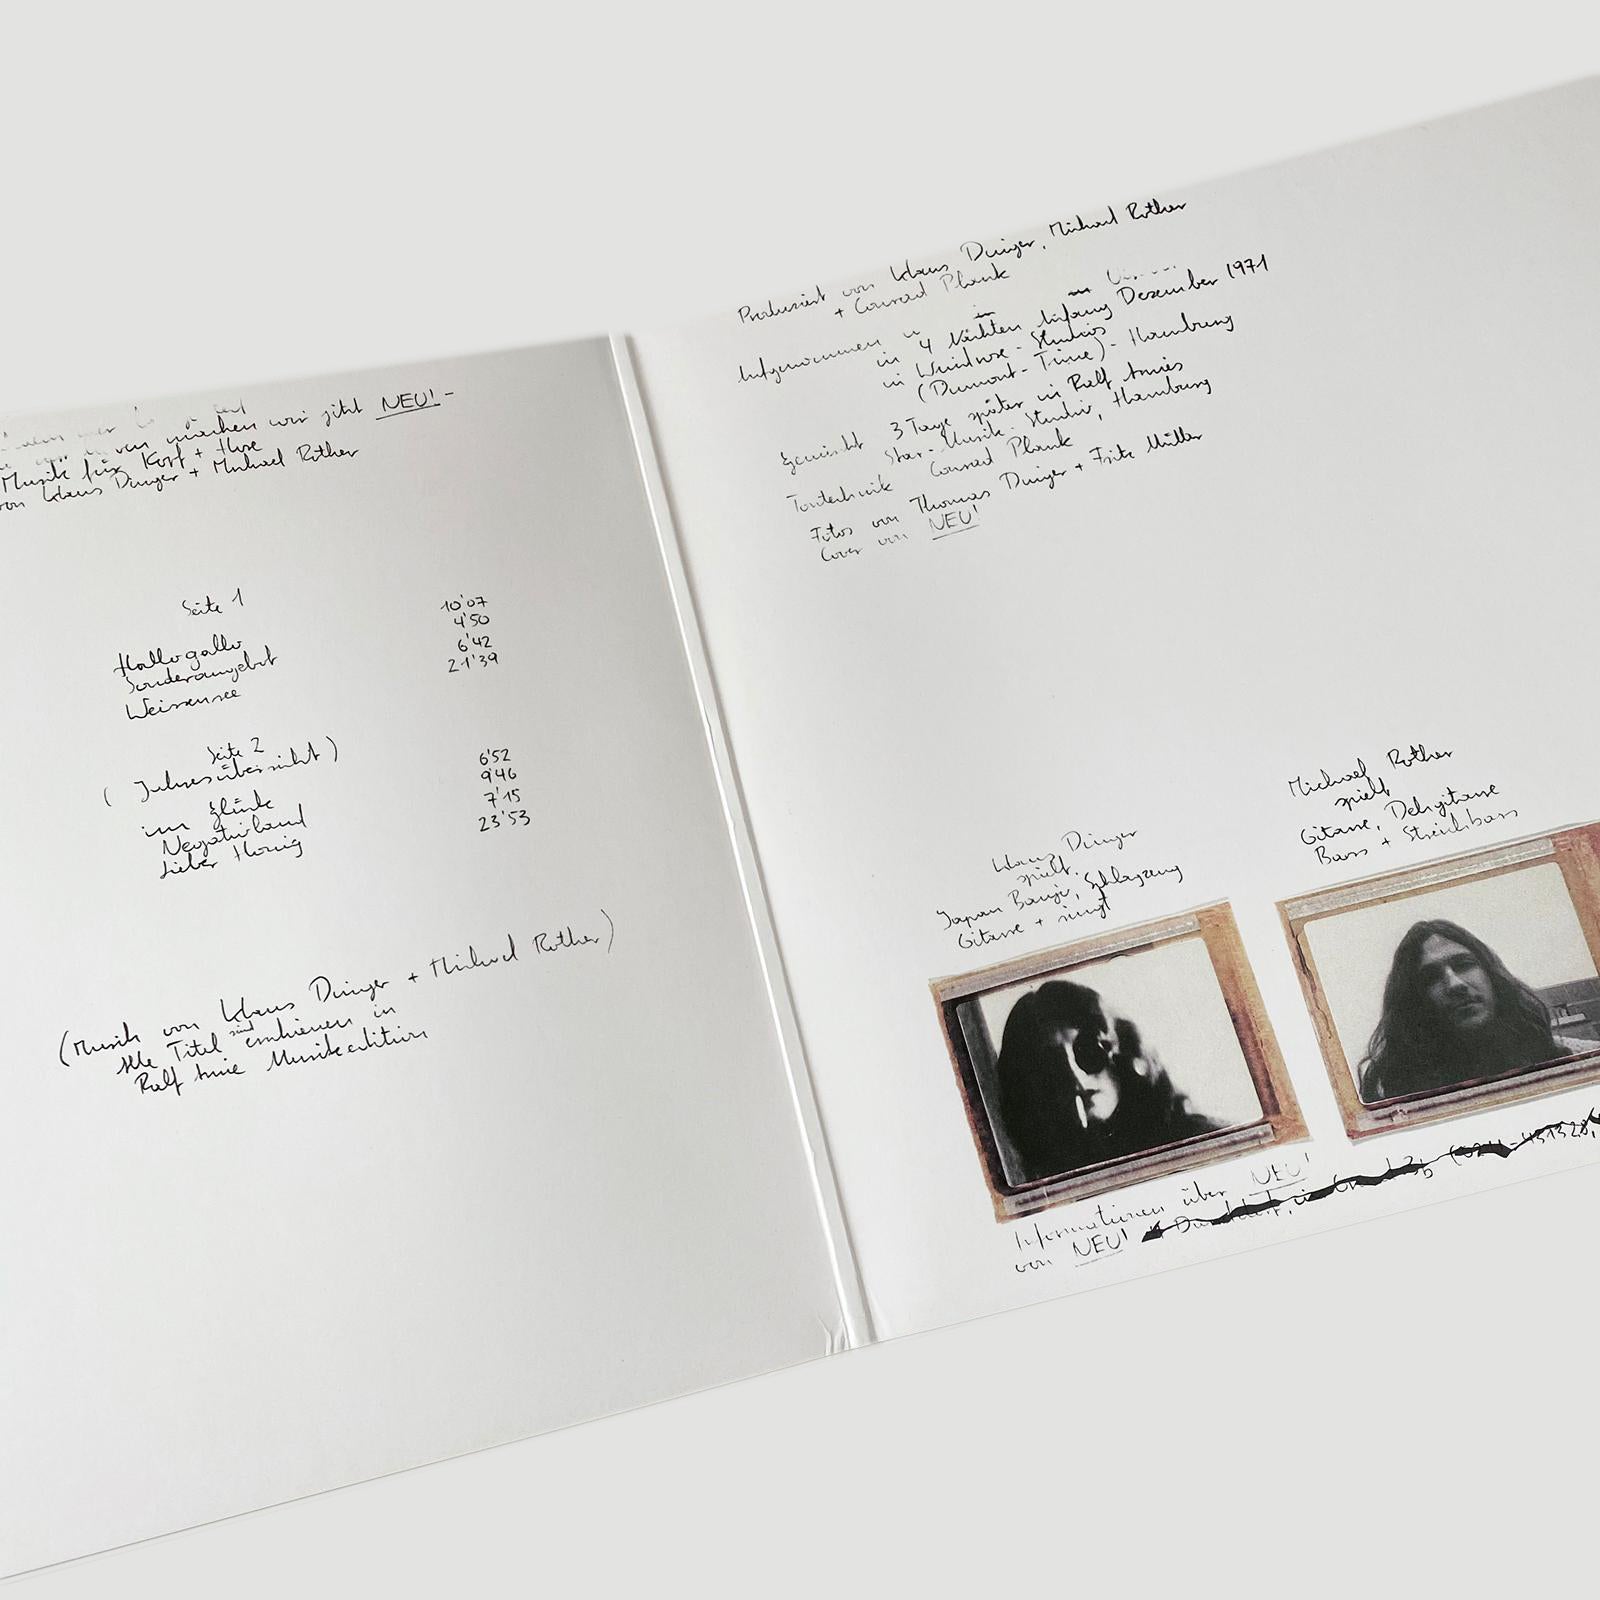 machen wir jetzt NEU! -
Musik für Kopf + Hose
von Klaus Dinger + Michael Rother
Seite 1
Hallogallo 10'07
Sonderangebot 4'50
Weissensee 6'42
21'39
Seite 2
( Jahresübersicht )
im Glück 6'52
Negativland 9'46
Lieber Honig 7'15
23'53
(Musik von Klaus Dinger + Michael Rother)
Alle Titel sind erschienen in
Ralf Arnie Musikedition
Produziert von Klaus Dinger, Michael Rother
+ Conrad Plank
Aufgenommen
in 4 Nächten Anfang Dezember 1971
in Windrose-Studios
(Dumont-Time) - Hamburg
Gemischt 3 Tage später in Ralf Arnies
Star-Musik-Studio, Hamburg
Tontechnik Conrad Plank
Fotos von Thomas Dinger + Fritz Müller
Cover von NEU!
Klaus Dinger
spielt
Japan Banjo, Schlagzeug
Gitarre + singt
Michael Rother
spielt
Gitarre, Dehgitarre
Bass + Streichbass
Informationen über NEU!
von NEU!